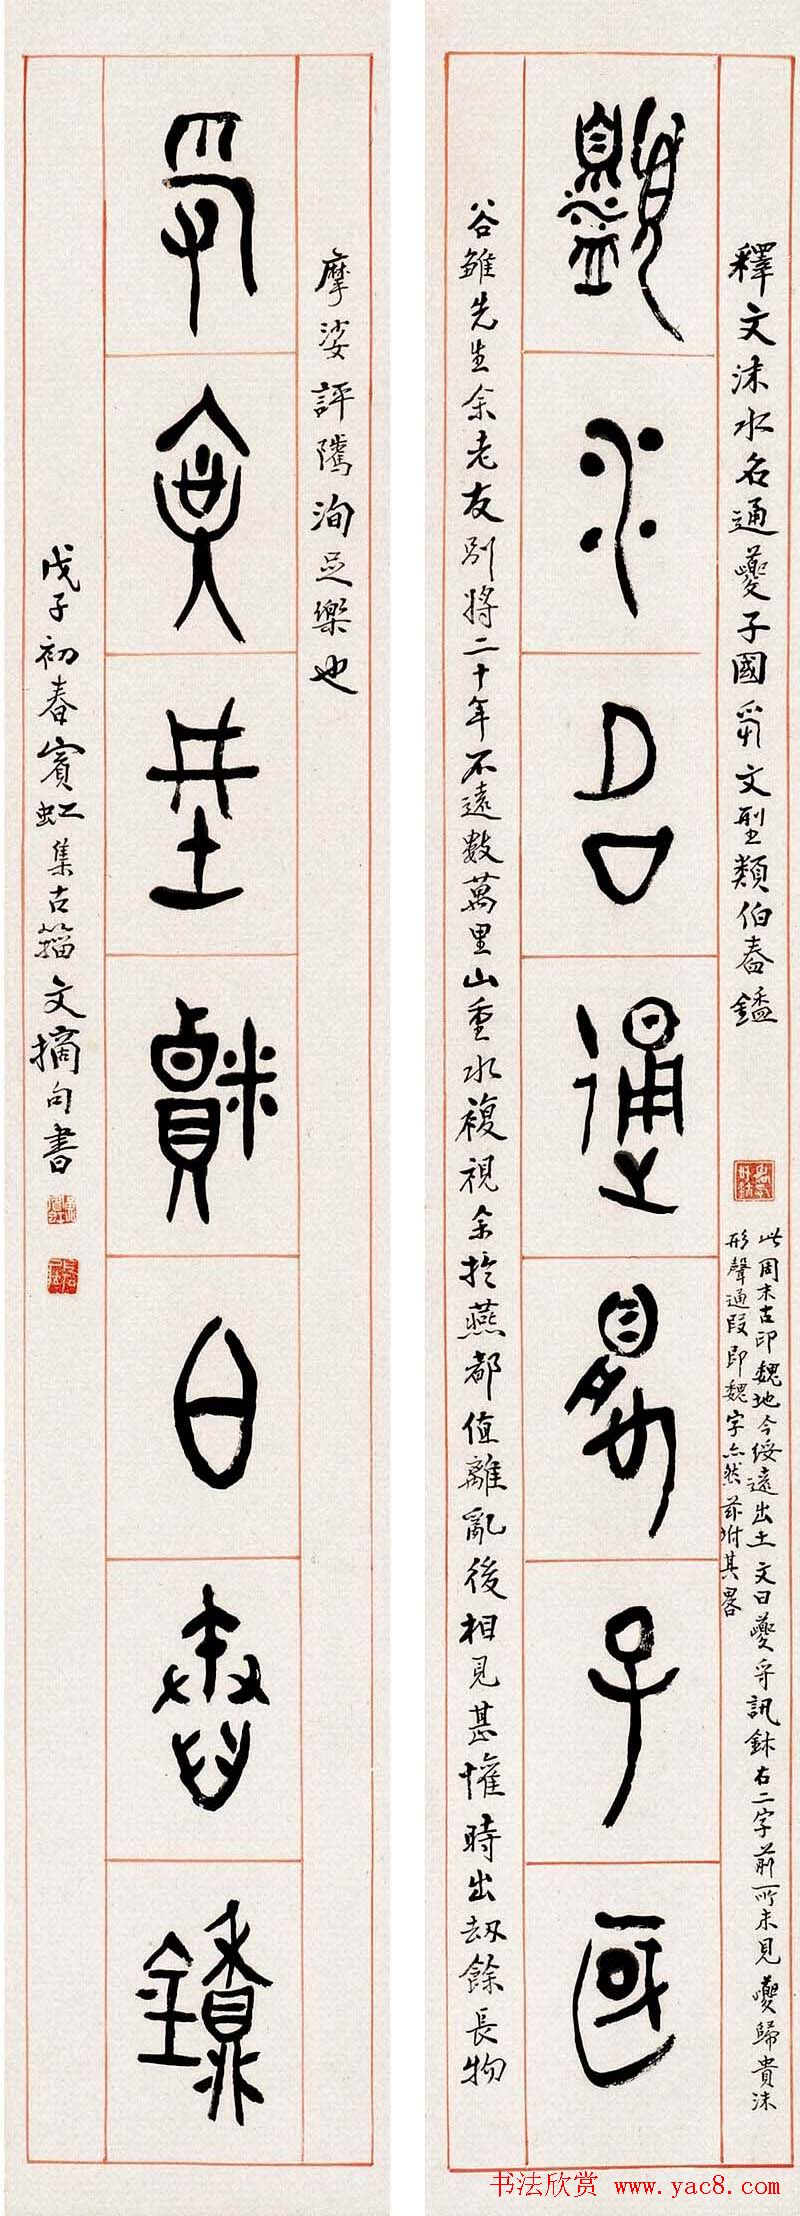 沬水名通夔子國
釋文沬水名通夔子國爭文型類伯春鑑
此周末古印魏地今綏遠出土文曰夔守訊鉢右二字前所未見夔歸貴沬
形聲通叚即魏字亦然茲坿其畧
谷雛先生余老友別將二十年不遠數萬里山重水複視余於燕都值離亂後相見甚懽時出劫餘長物
文型類伯春
摩娑評隲洵足樂也
戊子初春賓虹集古籀文摘句書
书法欣赏 www.yac8.com